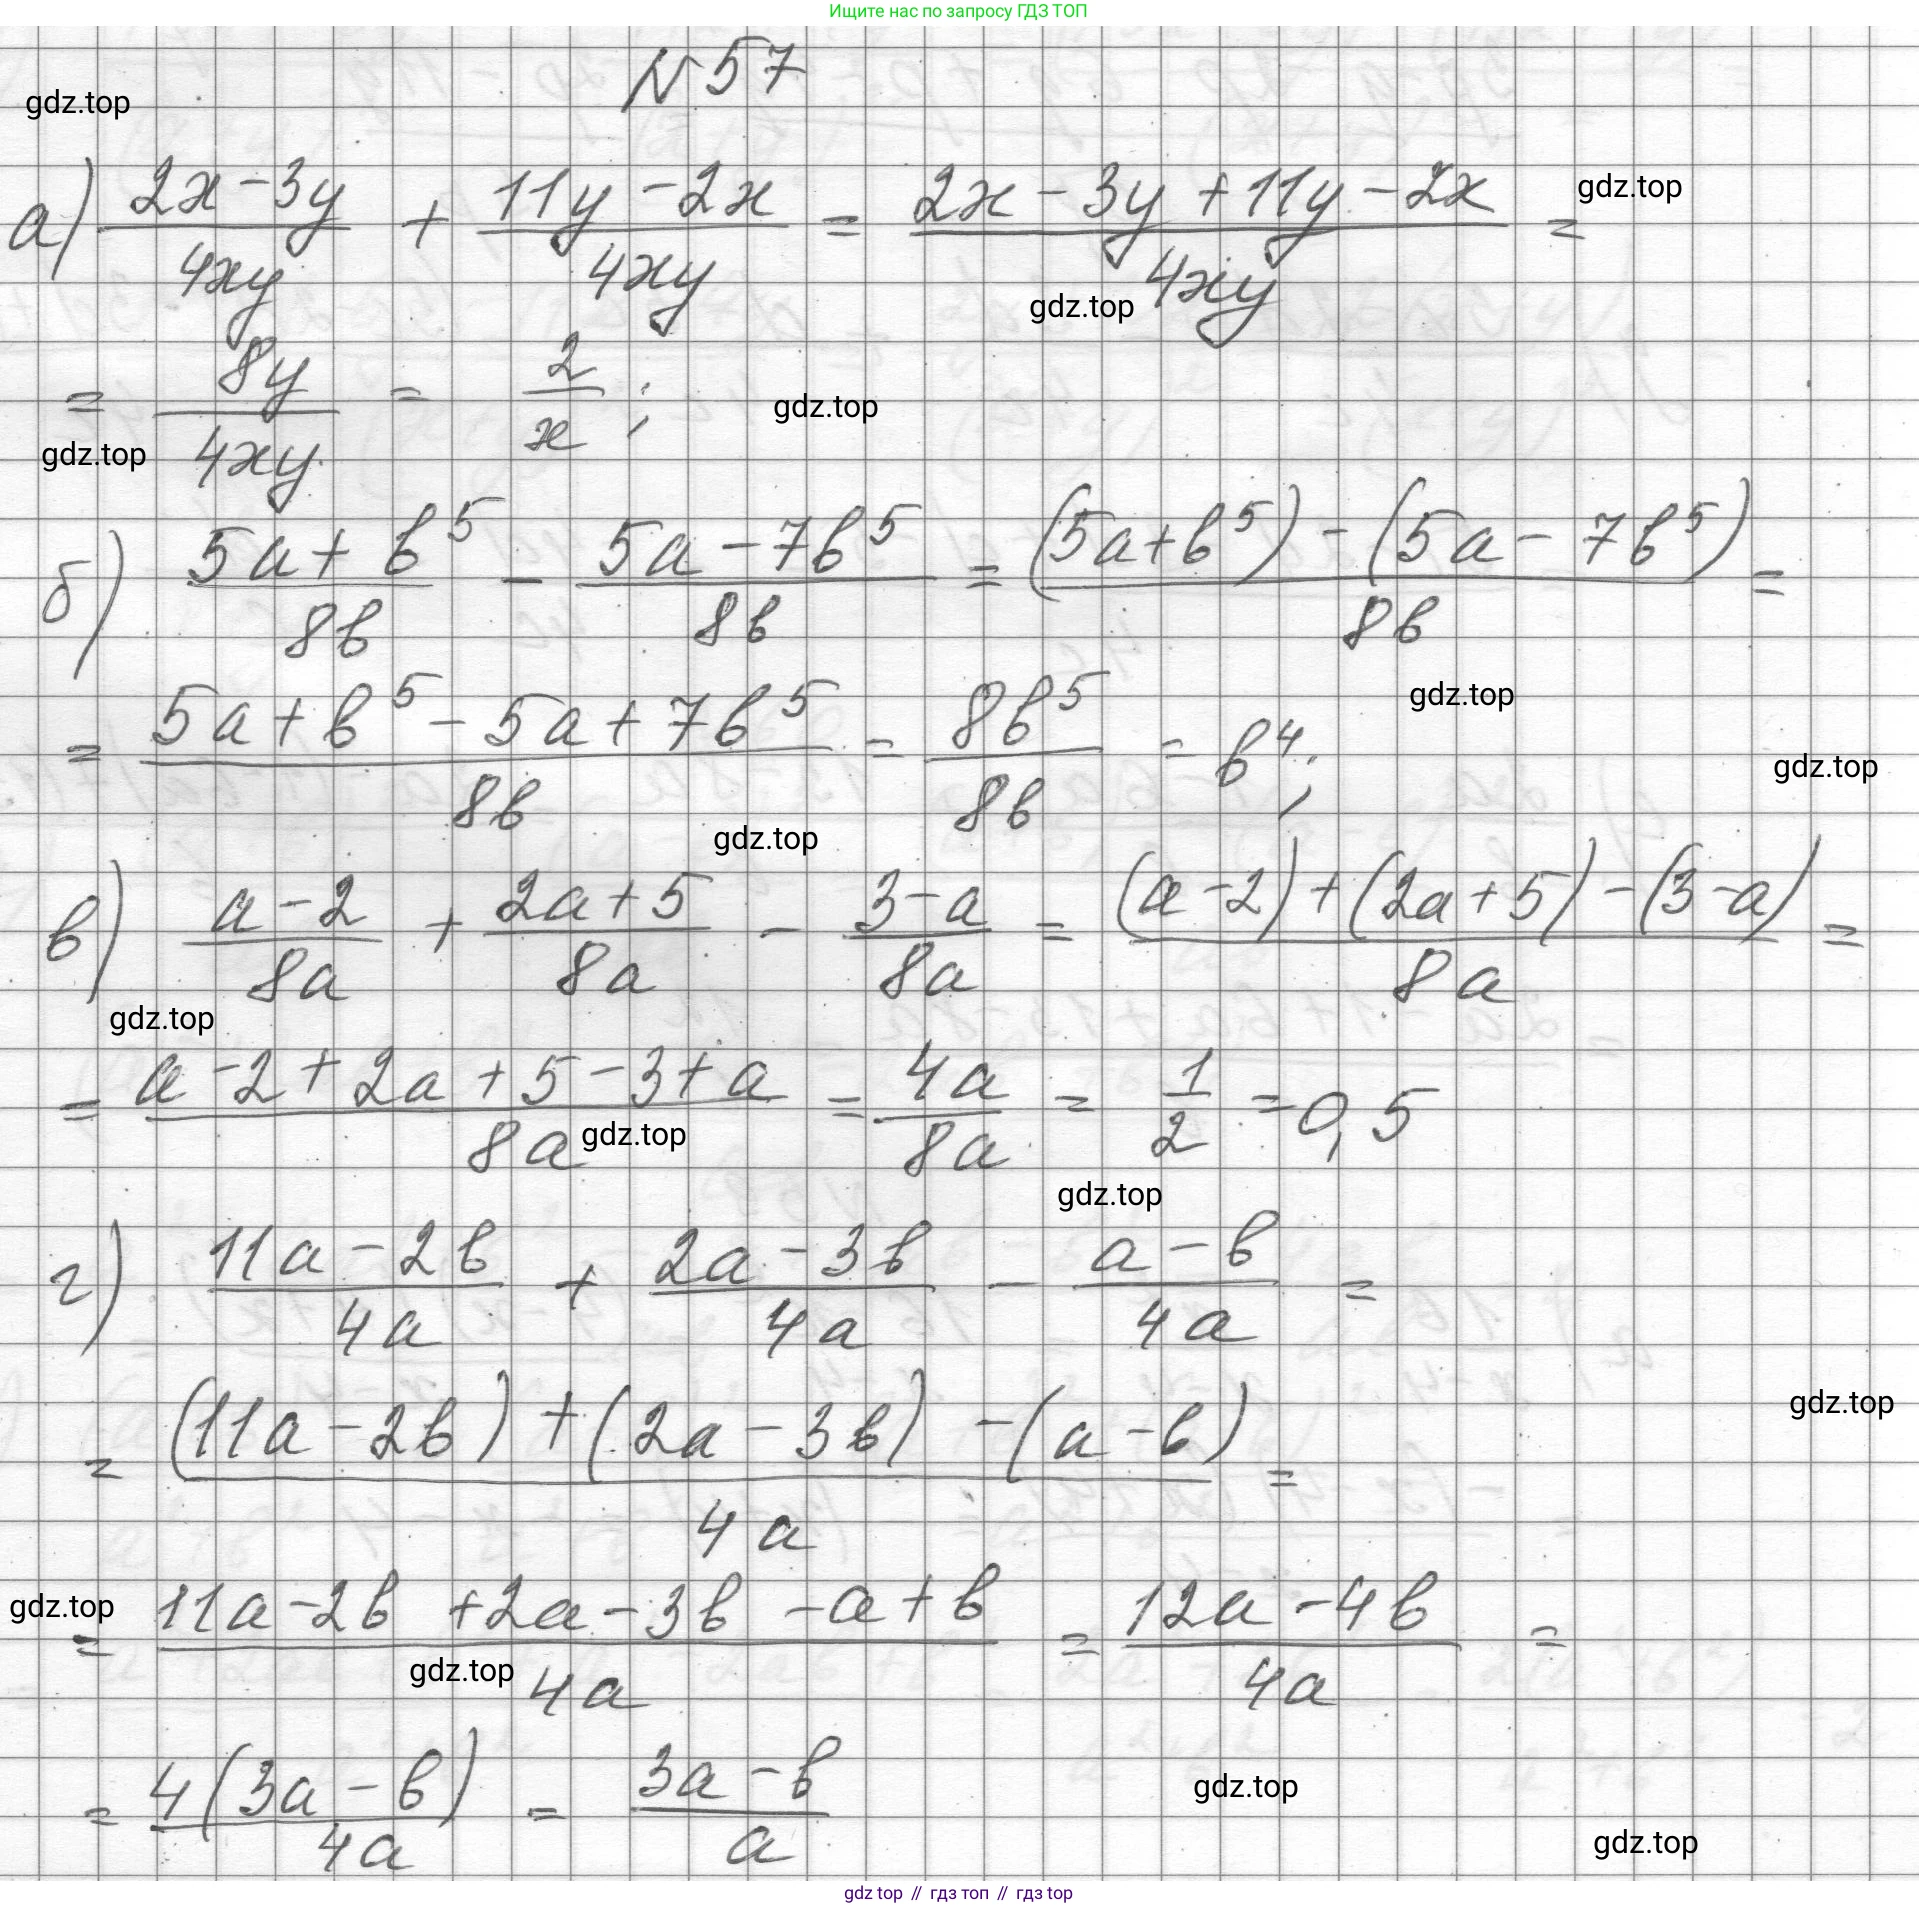 Ищите нас по запросу ГДЗ ТОП
№57
gdz.top
а) (2x-3y)/(4xy) + (11y-2x)/(4xy) = (2x-3y+11y-2x)/(4xy) =
gdz.top
gdz.top
= 8y/(4xy) = 2/x ;
gdz.top
gdz.top
б) (5a+b^5)/(8b) - (5a-7b^5)/(8b) = ((5a+b^5)-(5a-7b^5))/(8b) =
gdz.top
= (5a+b^5-5a+7b^5)/(8b) = 8b^5/(8b) = b^4;
gdz.top
gdz.top
в) (a-2)/(8a) + (2a+5)/(8a) - (3-a)/(8a) = ((a-2)+(2a+5)-(3-a))/(8a) =
gdz.top
= (a-2+2a+5-3+a)/(8a) = 4a/(8a) = 1/2 = 0,5
gdz.top
gdz.top
г) (11a-2b)/(4a) + (2a-3b)/(4a) - (a-b)/(4a) =
= ((11a-2b)+(2a-3b)-(a-b))/(4a) =
gdz.top
gdz.top
= (11a-2b+2a-3b-a+b)/(4a) = (12a-4b)/(4a) =
gdz.top
= 4(3a-b)/(4a) = (3a-b)/a
gdz.top
gdz.top
gdz top // гдз топ // гдз top